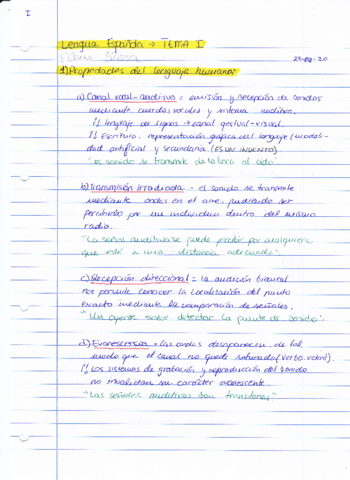 I
Lengua Española → TEMA I
23-09-20
1) Propiedades del lenguaje humano:
a) Canal vocal-auditivo = emisión y recepción de sonidos
mediante cuerdas vocales y sistema auditivo.
lenguaje de signos → canal gestual-visual.
Escritura: representación gráfica del lenguaje (modali-
dad artificial y secundaria) (ES UN INVENTO).
"El sonido se transmite de la boca al oído"
b) Transmisión irradiada = el sonido se transmite
mediante ondas en el aire, pudiendo ser
percibido por un individuo dentro del mismo
radio.
"La señal auditiva se puede percibir por cualquiera
que esté a una distancia adecuada".
c) Recepción direccional = la audición biaural
nos permite conocer la localización del punto
exacto mediante la comparación de señales.
"Un oyente sabe detectar la fuente de sonido".
d) Evanescencia = las ondas desaparecen de tal
modo que el canal no quede saturado (verba volant).
Los sistemas de grabación y reproducción del sonido
no invalidan su carácter evanescente.
"Las señales auditivas son transitorias".